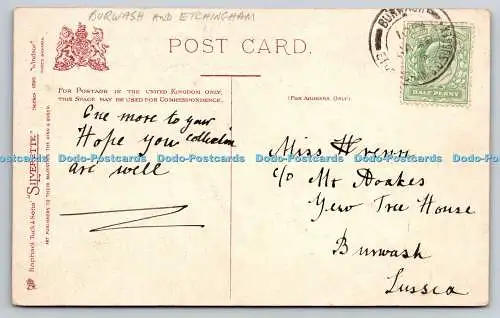 BURWASH AND ETCHINGHAM
POST CARD.
FOR POSTAGE IN THE UNITED KINGDOM ONLY,
THIS SPACE MAY BE USED FOR CORRESPONDENCE.
(FOR ADDRESS ONLY.)
BURWASH
HALF PENNY
One more to your
collection
Hope you
are well
Miss Wrenn
c/o Mr Noakes
Yew Tree House
Burwash
Sussex
Raphael Tuck & Sons' "SILVERETTE"
ART PUBLISHERS TO THEIR MAJESTIES THE KING & QUEEN.
Dodo-Postcards Dodo-Postcards Dodo-Postcards Dodo-Postcards Dodo-Postcards